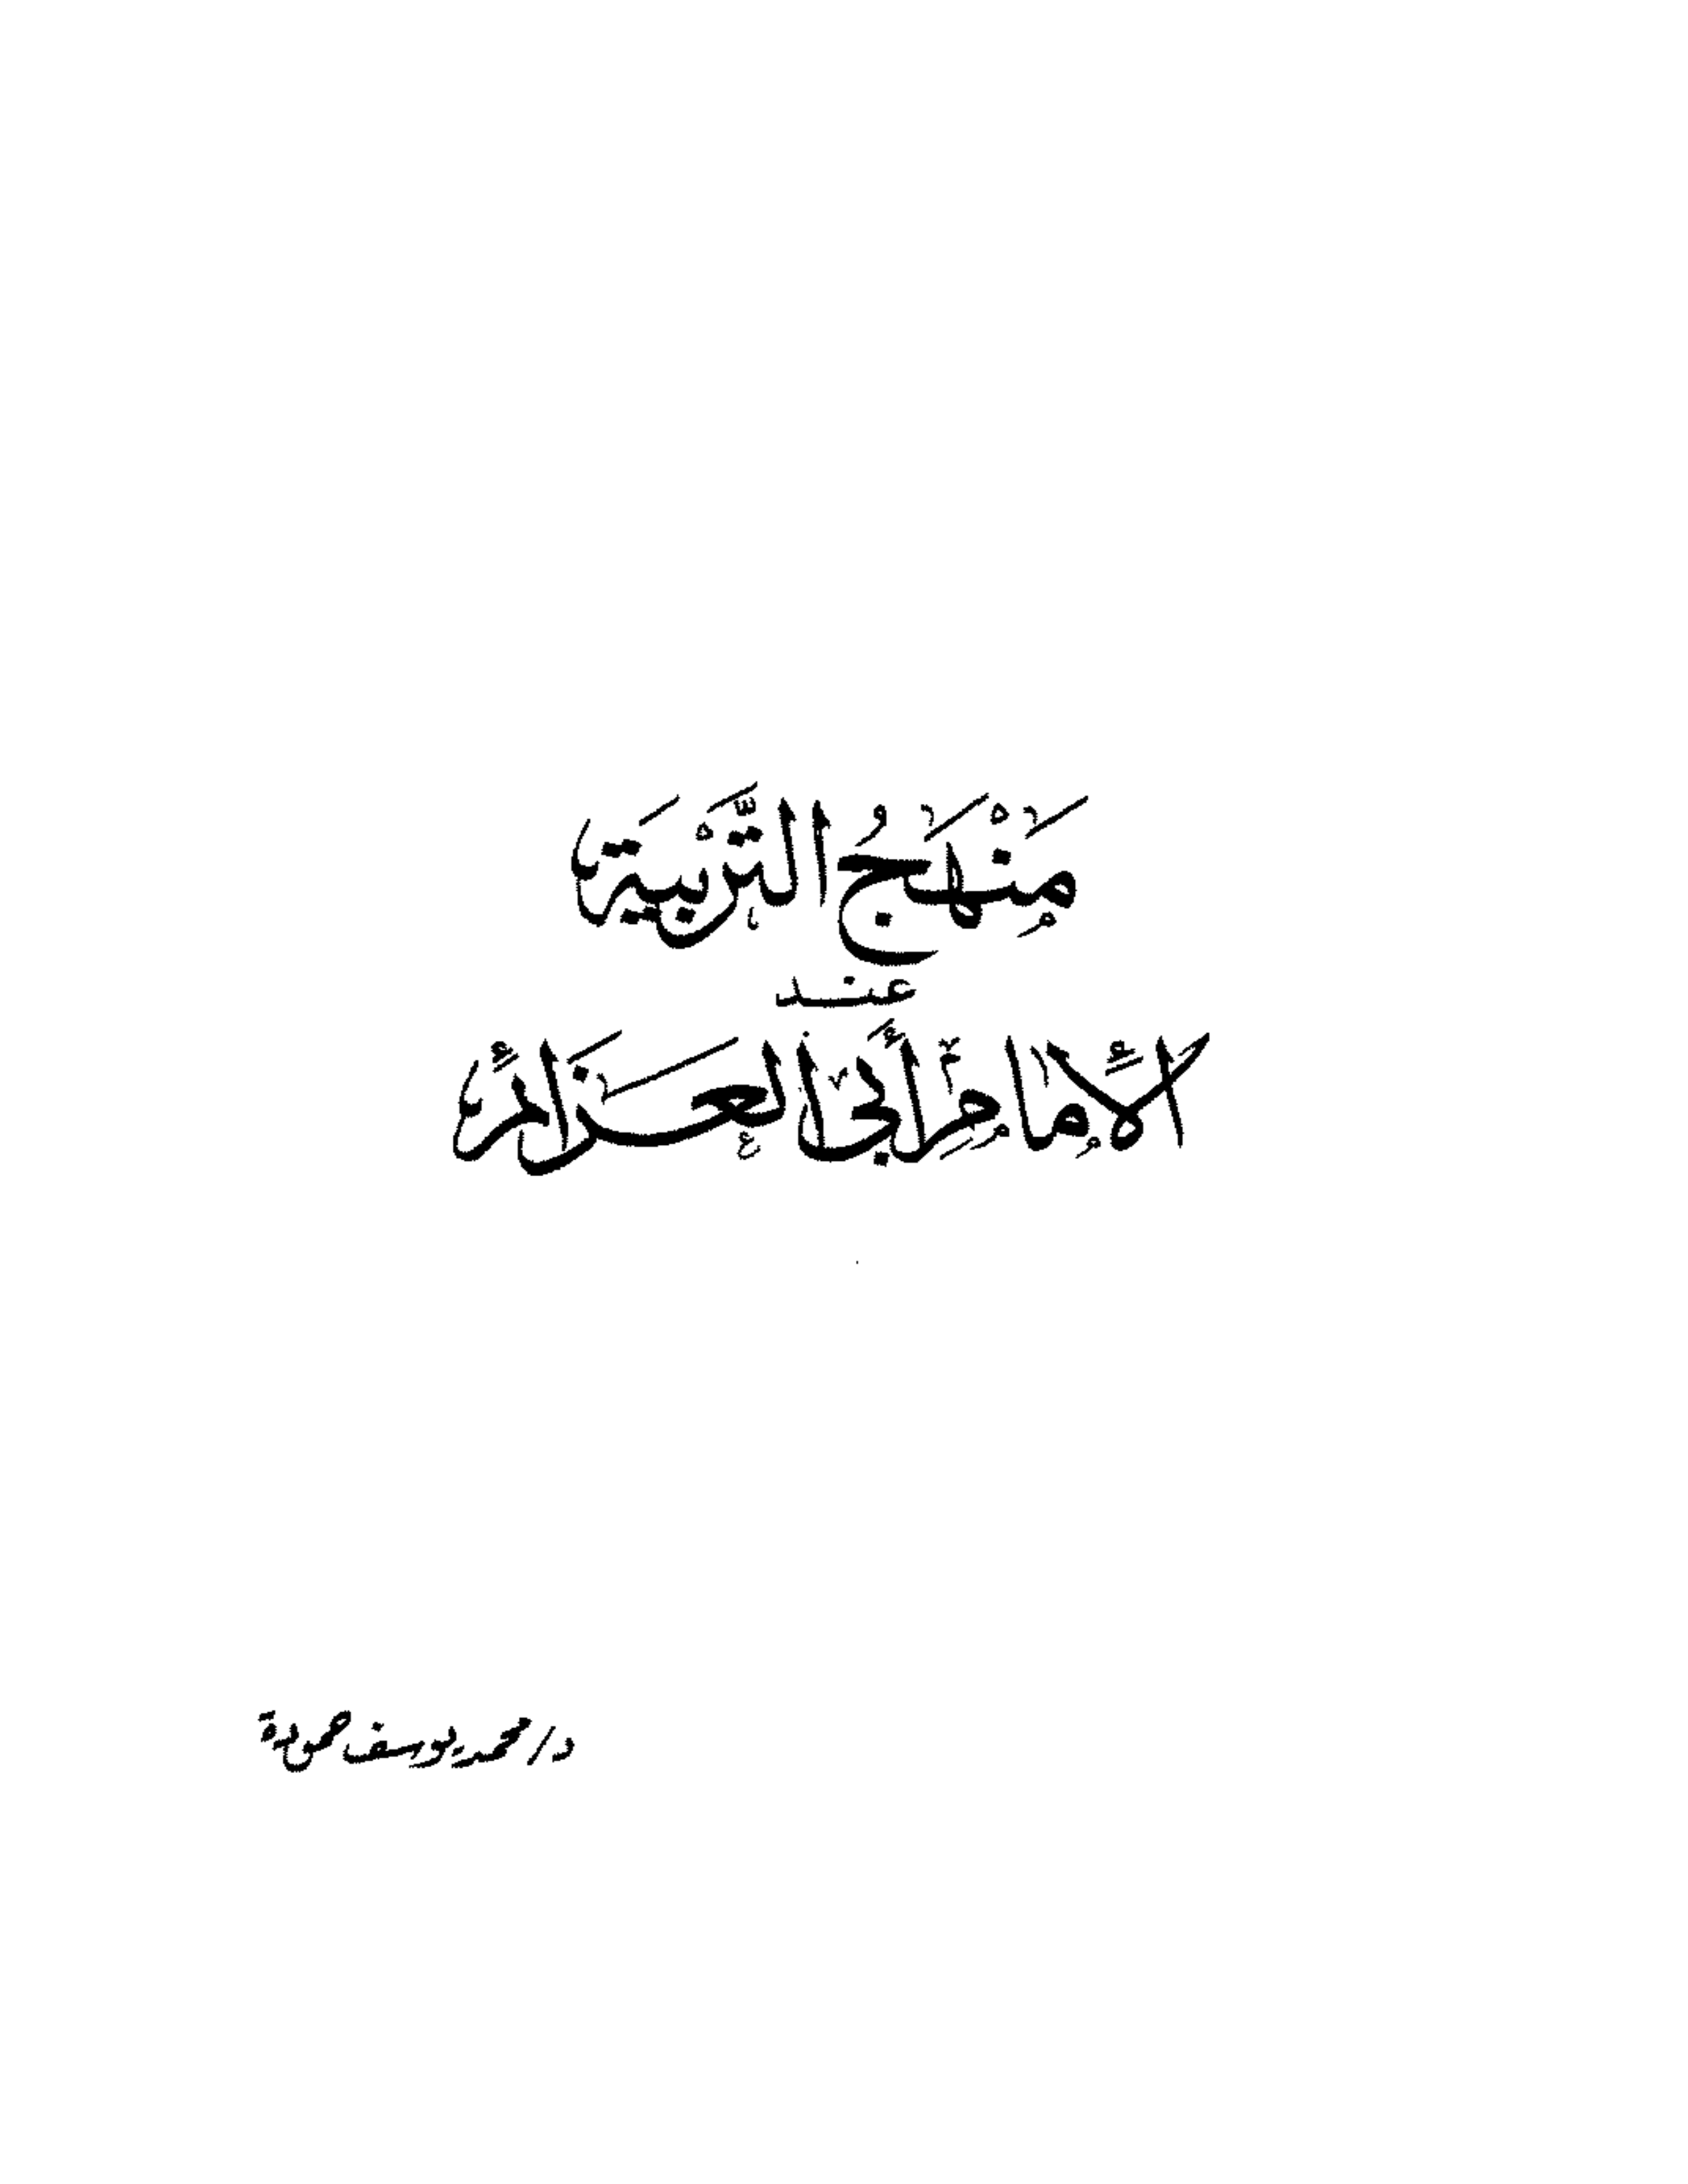 مَنْهَجُ التَّرْبِيَة
عند
الإمام أبي العزائم
د/ محمد يوسف حمويدة